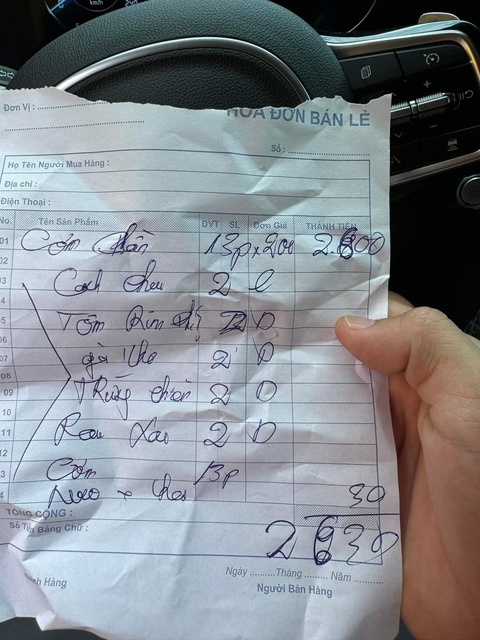 km/h
HÓA ĐƠN BÁN LẺ
Đơn Vị :
Số :
Họ Tên Người Mua Hàng :
Địa chỉ :
Điện Thoại :
No. Tên Sản Phẩm ĐVT SL Đơn Giá THÀNH TIỀN
01 Cơm 13p x 200 2.600
02
03 2
Tôm Rim 2
07 gà 2
08
09 Trứng chiên 2
10
11 Rau Xào 2
12
Cơm 13p
30
TỔNG CỘNG :
Số Tiền Bằng Chữ :
2630
Ngày ..........Tháng ......... Năm ..........
Hàng
Người Bán Hàng